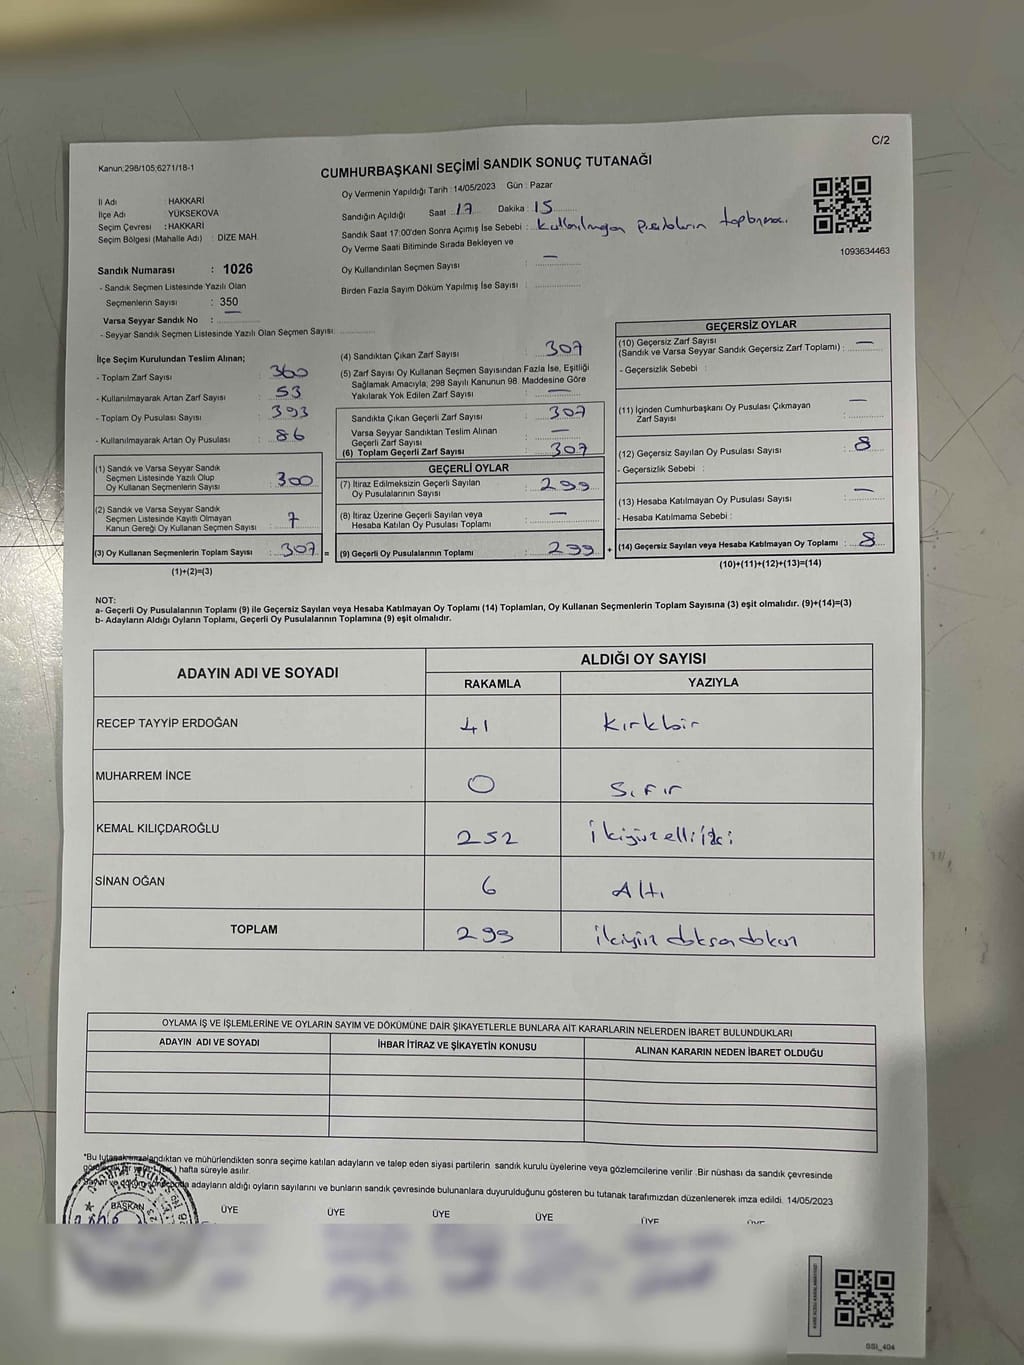 C/2
Kanun:298/105;6271/18-1
CUMHURBAŞKANI SEÇİMİ SANDIK SONUÇ TUTANAĞI
Oy Vermenin Yapıldığı Tarih : 14/05/2023 Gün : Pazar
İl Adı : HAKKARİ
İlçe Adı : YÜKSEKOVA
Seçim Çevresi : HAKKARİ
Seçim Bölgesi (Mahalle Adı) : DİZE MAH.
Sandığın Açıldığı Saat : 17 Dakika : 15
Sandık Saat 17:00'den Sonra Açımış İse Sebebi : Kullanılmayan toplanması
Oy Verme Saati Bitiminde Sırada Bekleyen ve
Oy Kullandırılan Seçmen Sayısı : —
Birden Fazla Sayım Döküm Yapılmış İse Sayısı :
1093634463
Sandık Numarası : 1026
- Sandık Seçmen Listesinde Yazılı Olan
Seçmenlerin Sayısı : 350
Varsa Seyyar Sandık No : —
- Seyyar Sandık Seçmen Listesinde Yazılı Olan Seçmen Sayısı:
İlçe Seçim Kurulundan Teslim Alınan;
- Toplam Zarf Sayısı : 360
- Kullanılmayarak Artan Zarf Sayısı : 53
- Toplam Oy Pusulası Sayısı : 393
- Kullanılmayarak Artan Oy Pusulası : 86
(1) Sandık ve Varsa Seyyar Sandık
Seçmen Listesinde Yazılı Olup
Oy Kullanan Seçmenlerin Sayısı : 300
(2) Sandık ve Varsa Seyyar Sandık
Seçmen Listesinde Kayıtlı Olmayan
Kanun Gereği Oy Kullanan Seçmen Sayısı : 7
(3) Oy Kullanan Seçmenlerin Toplam Sayısı : 307 =
(1)+(2)=(3)
(4) Sandıktan Çıkan Zarf Sayısı : 307
(5) Zarf Sayısı Oy Kullanan Seçmen Sayısından Fazla İse, Eşitliği
Sağlamak Amacıyla, 298 Sayılı Kanunun 98. Maddesine Göre
Yakılarak Yok Edilen Zarf Sayısı : —
Sandıkta Çıkan Geçerli Zarf Sayısı : 307
Varsa Seyyar Sandıktan Teslim Alınan
Geçerli Zarf Sayısı : —
(6) Toplam Geçerli Zarf Sayısı : 307
GEÇERLİ OYLAR
(7) İtiraz Edilmeksizin Geçerli Sayılan
Oy Pusulalarının Sayısı : 299
(8) İtiraz Üzerine Geçerli Sayılan veya
Hesaba Katılan Oy Pusulası Toplamı : —
(9) Geçerli Oy Pusulalarının Toplamı : 299 +
GEÇERSİZ OYLAR
(10) Geçersiz Zarf Sayısı
(Sandık ve Varsa Seyyar Sandık Geçersiz Zarf Toplamı) : —
- Geçersizlik Sebebi :
(11) İçinden Cumhurbaşkanı Oy Pusulası Çıkmayan
Zarf Sayısı : —
(12) Geçersiz Sayılan Oy Pusulası Sayısı : 8
- Geçersizlik Sebebi :
(13) Hesaba Katılmayan Oy Pusulası Sayısı : —
- Hesaba Katılmama Sebebi :
(14) Geçersiz Sayılan veya Hesaba Katılmayan Oy Toplamı : 8
(10)+(11)+(12)+(13)=(14)
NOT:
a- Geçerli Oy Pusulalarının Toplamı (9) ile Geçersiz Sayılan veya Hesaba Katılmayan Oy Toplamı (14) Toplamları, Oy Kullanan Seçmenlerin Toplam Sayısına (3) eşit olmalıdır. (9)+(14)=(3)
b- Adayların Aldığı Oyların Toplamı, Geçerli Oy Pusulalarının Toplamına (9) eşit olmalıdır.
ADAYIN ADI VE SOYADI
ALDIĞI OY SAYISI
RAKAMLA YAZIYLA
RECEP TAYYİP ERDOĞAN 41 Kırkbir
MUHARREM İNCE 0 Sıfır
KEMAL KILIÇDAROĞLU 252 İkiyüzelliiki
SİNAN OĞAN 6 Altı
TOPLAM 299 ikiyüz doksandokuz
OYLAMA İŞ VE İŞLEMLERİNE VE OYLARIN SAYIM VE DÖKÜMÜNE DAİR ŞİKAYETLERLE BUNLARA AİT KARARLARIN NELERDEN İBARET BULUNDUKLARI
ADAYIN ADI VE SOYADI İHBAR İTİRAZ VE ŞİKAYETİN KONUSU ALINAN KARARIN NEDEN İBARET OLDUĞU
*Bu tutanak imzalandıktan ve mühürlendikten sonra seçime katılan adayların ve talep eden siyasi partilerin sandık kurulu üyelerine veya gözlemcilerine verilir. Bir nüshası da sandık çevresinde
hafta süreyle asılır.
adayların aldığı oyların sayılarını ve bunların sandık çevresinde bulunanlara duyurulduğunu gösteren bu tutanak tarafımızdan düzenlenerek imza edildi. 14/05/2023
BAŞKAN ÜYE ÜYE ÜYE ÜYE ÜYE
SSI_404